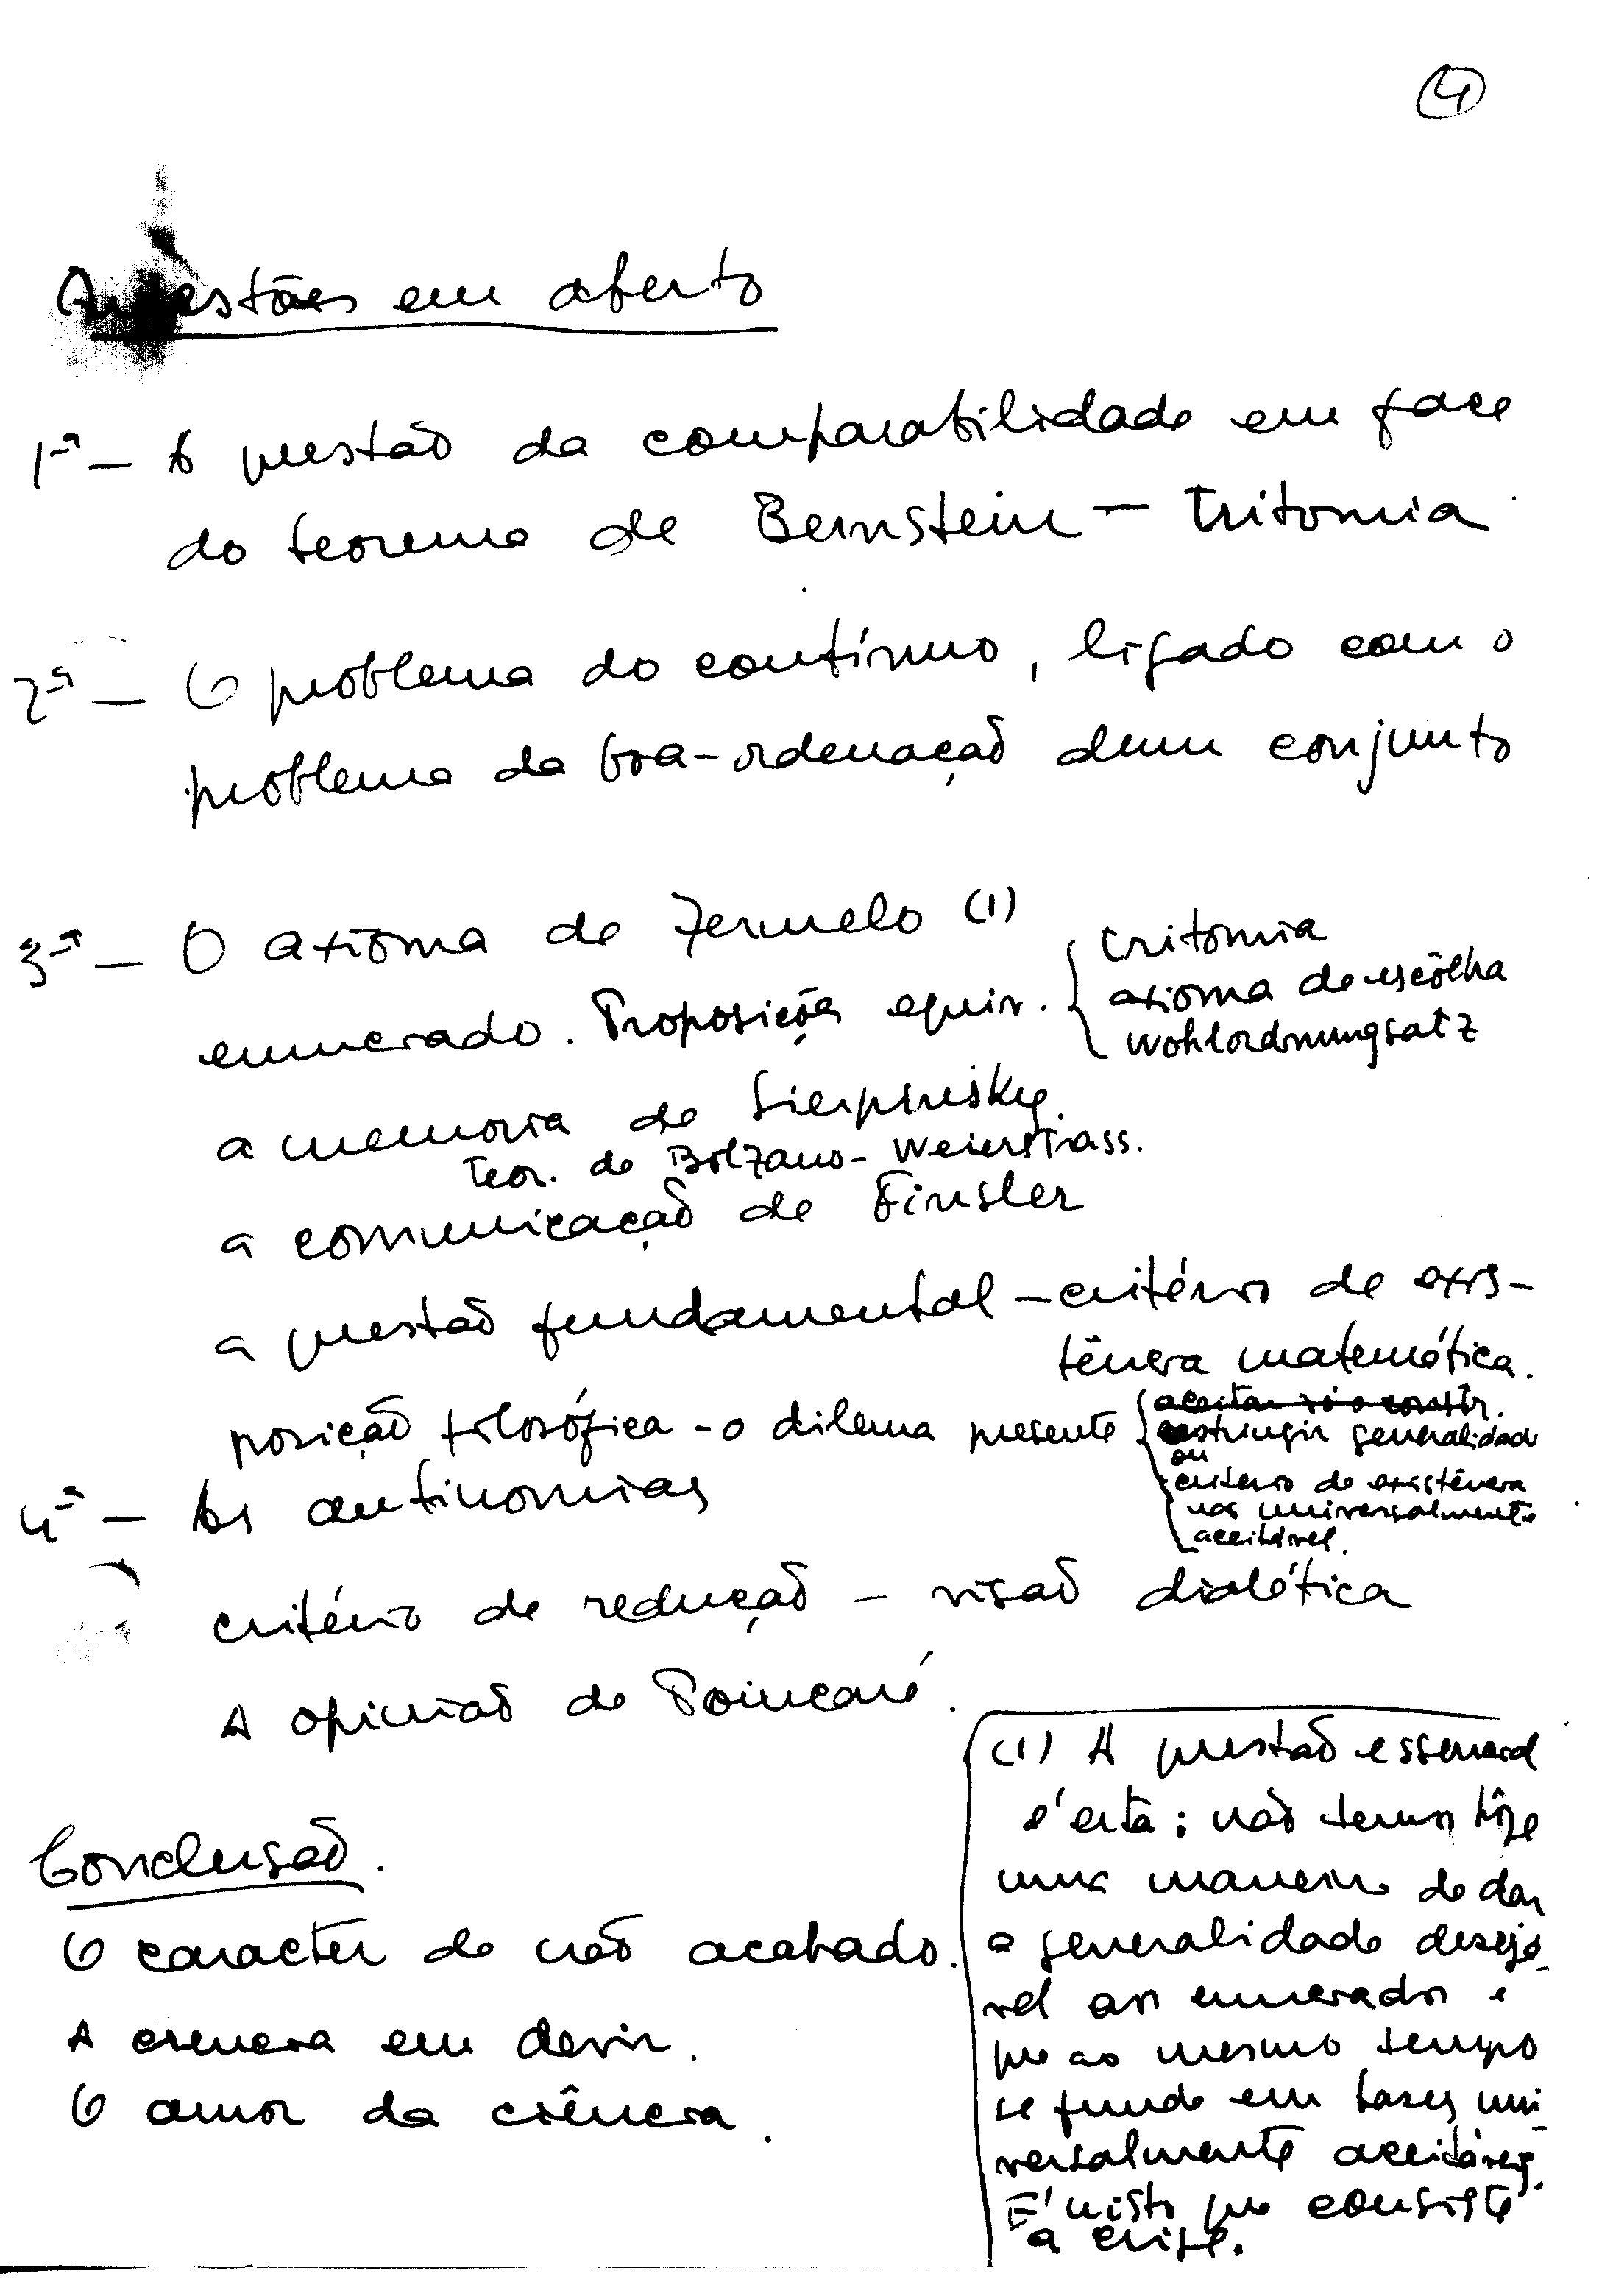 4
Questões em aberto
1ª — A questão da comparabilidade em face
do teorema de Bernstein — tritomia
2ª — O problema do contínuo, ligado com o
problema da boa-ordenação dum conjunto
3ª — O axioma de Zermelo (1)
enunciado. Proposições equiv.
tritomia
axioma de escôlha
Wohlordnungsatz
a memoria de Sierpinsky.
Teor. de Bolzano-Weierstrass.
a comunicação de Finsler
a questão fundamental — critério de exis-
tência matemática.
posição filosófica - o dilema presente
aceitar só o constr.
restringir generalidade
ou
criterio de existência
não universalmente
aceitável.
4ª — As antinomias
critério de redução — visão dialética
A opinião de Poincaré.
Conclusão.
O caracter de não acabado.
A ciencia em devir.
O amor da ciência.
(1) A questão essencial
é esta: não temos hôje
uma maneira de dar
a generalidade desejá-
vel aos enunciados e
que ao mesmo tempo
se funde em bases uni-
versalmente aceitáveis.
É nisto que consiste
a crise.